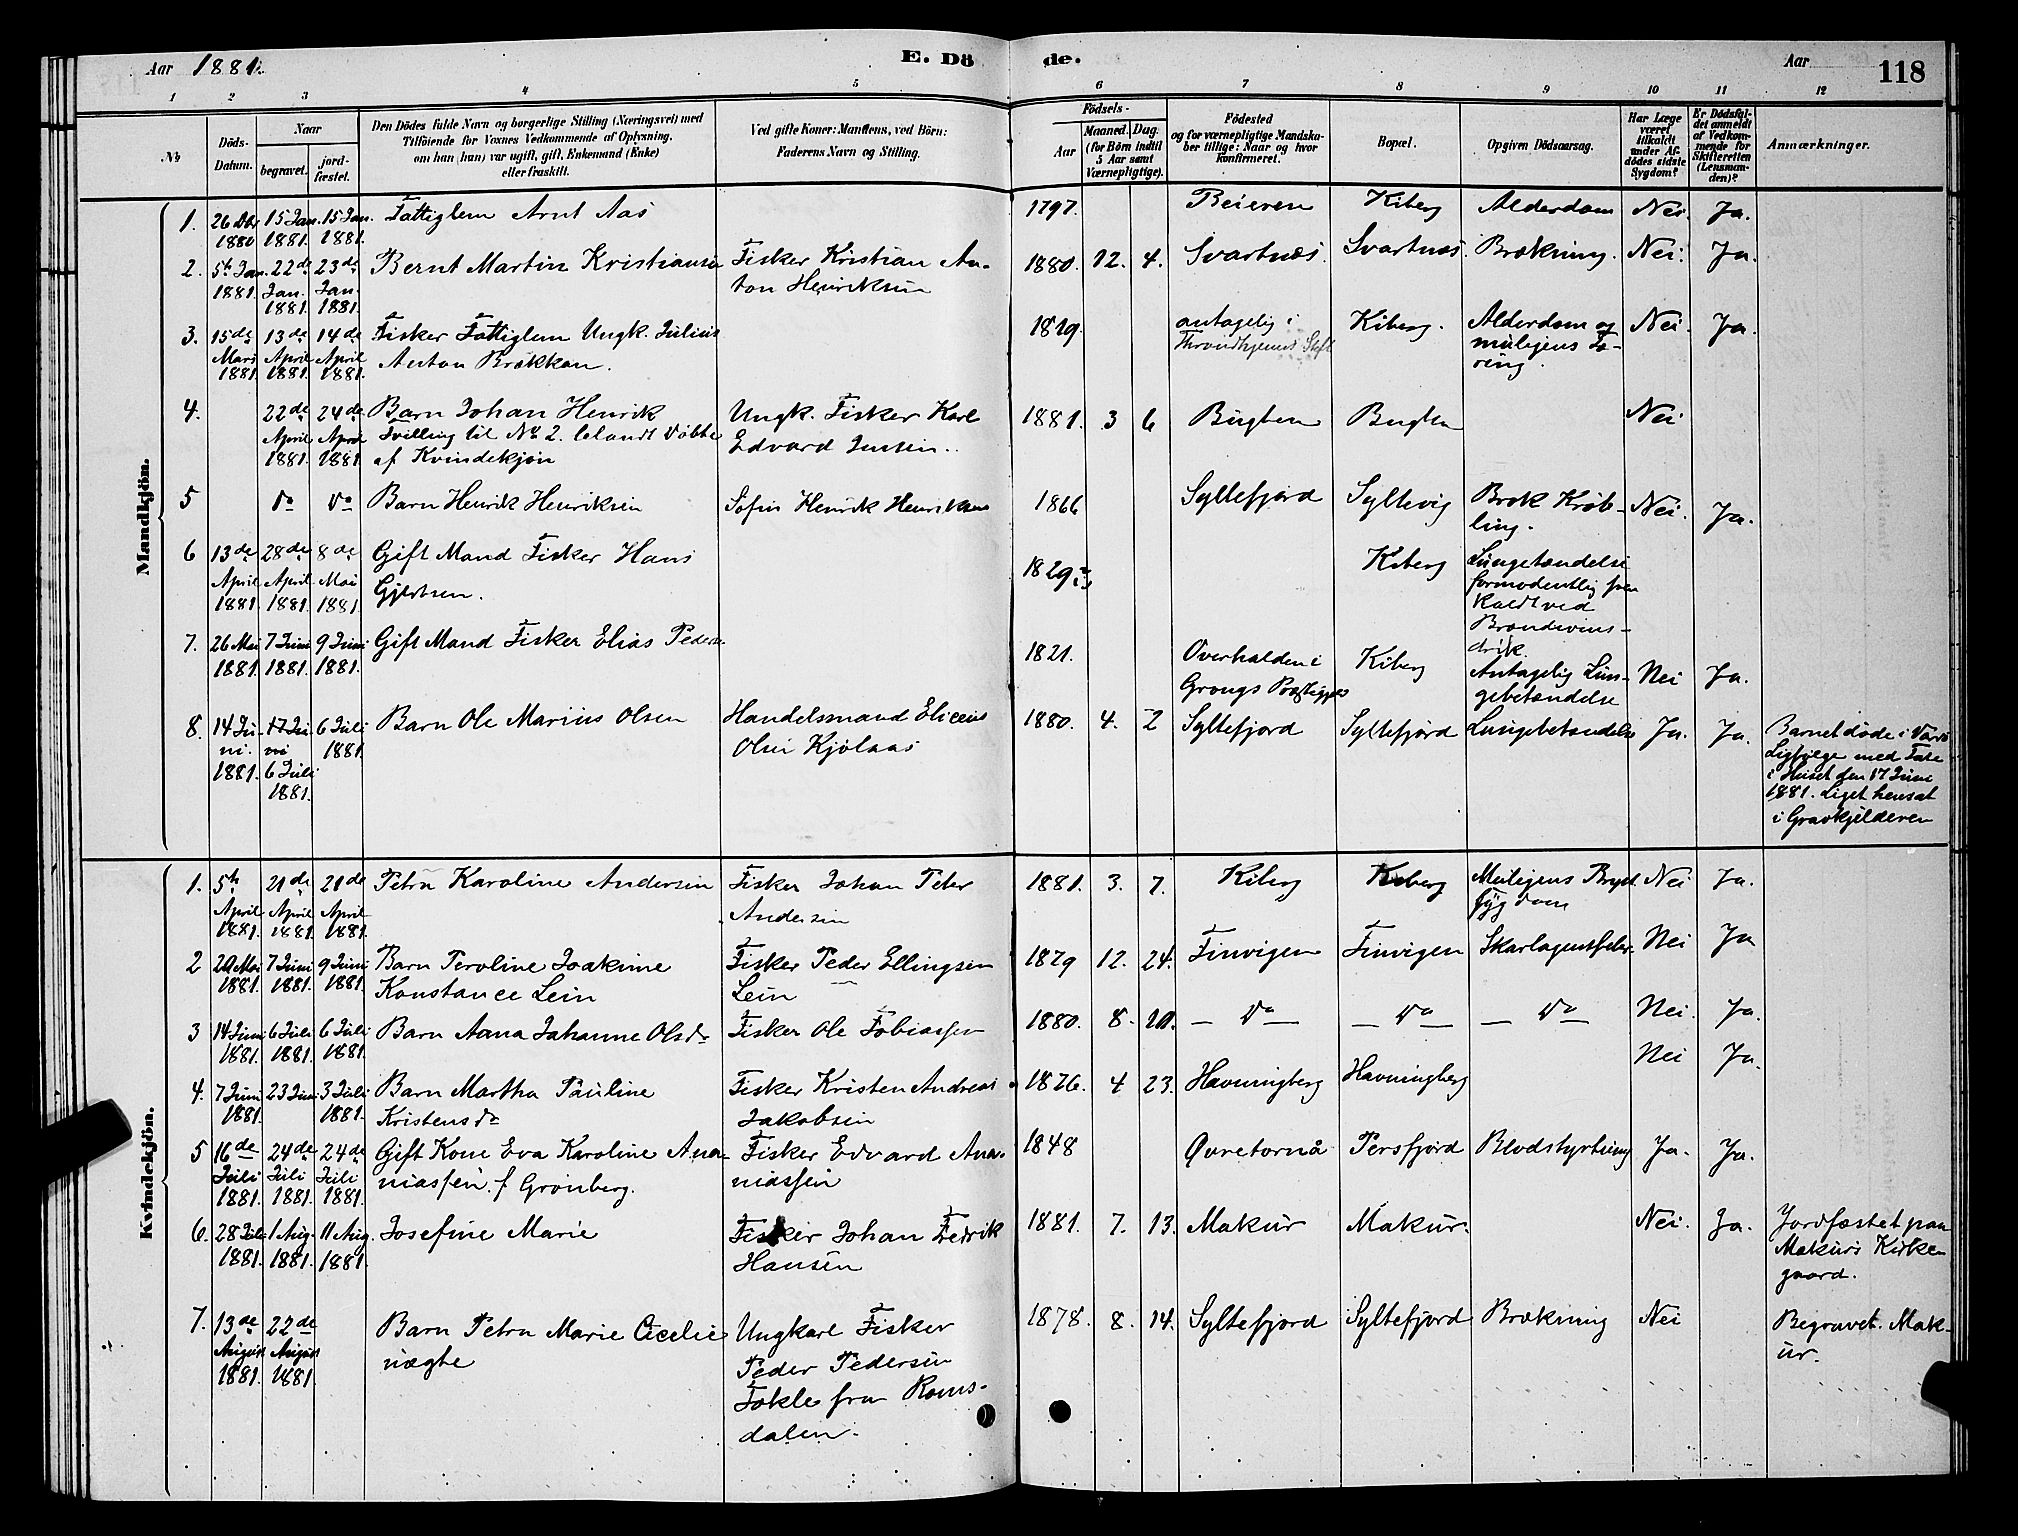 Aar 1881. E. Dö de. Aar 118
1 2 3 4 5 6 7 8 9 10 11 12
No
Döds-Datum.
Naar
begravet.
jord-fæstet.
Den Dödes fulde Navn og borgerlige Stilling (Næringsvei) med
Tilföiende for Voxnes Vedkommende af Oplysning.
om han (hun) var ugift, gift, Enkemand (Enke)
eller fraskilt.
Ved gifte Koner: Mandens, ved Börn:
Faderens Navn og Stilling.
Födsels-
Aar
Maaned. Dag.
(for Börn indtil
5 Aar samt
Værnepligtige).
Födested
og for værnepligtige Mandska-
ber tillige: Naar og hvor
konfirmeret.
Bopæl.
Opgiven Dödsaarsag.
Har Læge
været
tilkaldt
under Af-
dödes sidste
Sygdom?
Er Dödsfal-
det anmeldt
af Vedkom-
mende for
Skifteretten
(Lensman-
den)?
Anmærkninger.
Mandkjön.
1. 26 Dbr 1880 15 Jan. 1881. 15 Jan. 1881. Fattiglem Arnt Aas 1797. Beieren Kiberg Alderdom Nei Ja.
2. 5te Jan. 1881. 22de Jan. 1881. 23de Jan. 1881. Bernt Martin Kristiansen Fisker Kristian An-
ton Henriksen 1880. 12. 4. Svartnæs. Svartnæs. Brækning. Nei. Ja.
3. 15de Mars 1881. 13de April 1881. 14de April 1881. Fisker Fattiglem Ungk. Julius
Anton Brækkan. 1819. antagelig i
Throndhjems Stift Kiberg. Alderdom og
muligens Tæ-
ring. Nei. Ja.
4. 22de April 1881. 24de April 1881. Barn Johan Henrik
Tvilling til No 2. blandt Döbte
af Kvindekjön Ungk. Fisker Karl
Edvard Jensen. 1881. 3 6 Bugten Bugten Nei
5 do do Barn Henrik Henriksen Henrik Henriksen 1866 Syltefjord Syltevig Brok
ling. Nei. Ja.
6 13de April 1881. 28de April 1881. 8de Mai 1881. Gift Mand Fisker Hans
Gjertsen. 1829 Kiberg Lungetændelse
formodentlig fra
Kaldt ved
Brændevins-
drik.
7. 26 Mai 1881. 7 Juni 1881. 9 Juni 1881. Gift Mand Fisker Elias Peders 1821. Overhalden i
Grongs Kiberg Antagelig Lun-
gebetændelse Nei Ja.
8. 14 Ju-
ni. 1881. 17 Ju
ni
6 Juli 1881. 6 Juli 1881. Barn Ole Marius Olsen Handelsmand Eliceus
Olsen Kjölaas 1880. 4. 2 Syltefjord Syltefjord Lungebetændelse Ja. Ja. Barnet döde i Vardö
Ligfölge med Tale
i Huset den 17 Juni
1881. Liget hensat
i Gravkjelderen
Kvindekjön.
1. 5te April 1881. 21de April 1881. 21de April 1881. Petra Karoline Andersen Fisker Johan Peter
Andersen 1881. 3. 7. Kiberg Kiberg Muligens Bryst
sygdom Nei Ja.
2 20 Mai 1881. 7 Juni 1881. 9 Juni 1881. Barn Peroline Joakime
Konstance Lein Fisker Peder Ellingsen
Lein 1879 12. 24. Finvigen Finvigen Skarlagensfeber Nei Ja
3 14 Juni 1881. 6 Juli 1881. 6 Juli 1881. Barn Anna Johanne Olsdr Fisker Ole Tobiassen 1880. 8. — do — — do — — do — Nei. Ja.
4. 7 Juni 1881. 23 Juni 3 Juli 1881. Barn Martha Pauline
Kristensdr Fisker Kristen Andreas
Jakobsen 1876. 4 23. Havningberg Havningberg Nei Ja.
5 16de Juli 1881. 24de Juli 1881. 24de Juli 1881. Gift Kone Eva Karoline Ana-
niassen. f Grönberg. Fisker Edvard Ana-
niassen 1848 Övretornå Persfjord Blodstyrtning Ja. Ja.
6. 28 Juli 1881. 1 Aug. 1881. 11 Aug. 1881. Josefine Marie Fisker Johan Fedrik
Hansen 1881. 7. 13. Makur Makur. Nei. Ja. Jordfæstet paa
Makurs Kirke
gaard.
7. 13de August 1881. 22de August 1881. Barn Petra Marie Cicelie
uægte Ungkarl Fisker
Peder Pedersen
Tokle fra Roms-
dalen. 1878. 8. 14. Syltefjord Syltefjord Brækning Nei Begravet. Mak-
ur.